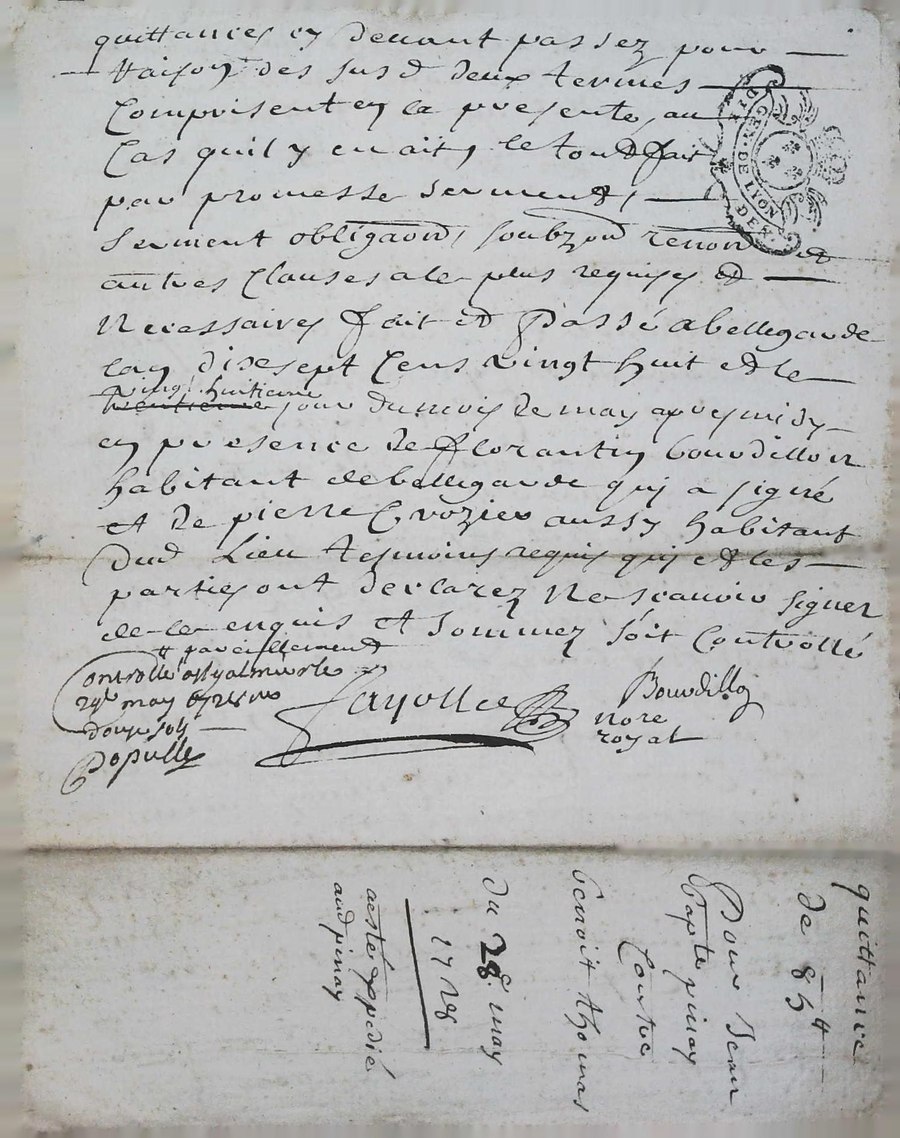 quittances cy devant passez pour
raison des susd deux termes
Comprisent en la presente, au
Cas quil y en ait, le tout fait
par promesse serment,
serment obligaon, soubzon renon et
autres Clauses a le plus requises et
Necessaires fait et Passé a bellegarde
lan dixsept Cens vingt huit et le
vingt huitieme
trentieme jour du mois de may apres midy
en presence de florantin bourdillon
habitant de bellegarde qui a signé
et de pierre Crozier aussy habitant
dud Lieu tesmoins requis qui et les
parties ont declarez Ne scavoir signer
de le enquis et sommez soit Controllé
pareillement
Controllé
29e may 1728
douze sols
Populle
Jayolle
Bourdillon
nore
royal
DIX
GEN. DE LYON
DEN.
quittance
de 85 ₶
Pour Jean
Bapte pinay
Contre
benoit thomas
du 28e may
1728
a esté expedié
aud pinay